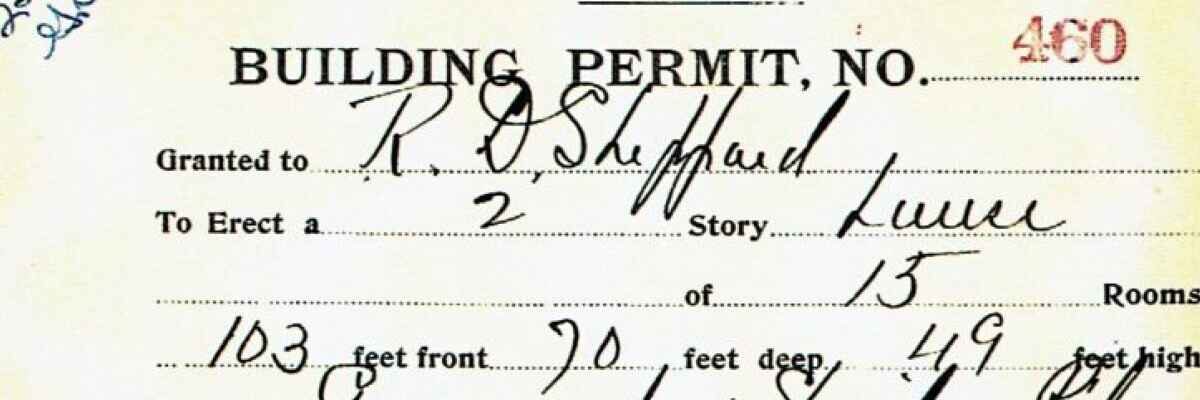 BUILDING PERMIT, NO. 460
Granted to R. D. Sheppard
To Erect a 2 Story
of 15 Rooms
103 feet front 70 feet deep 49 feet high